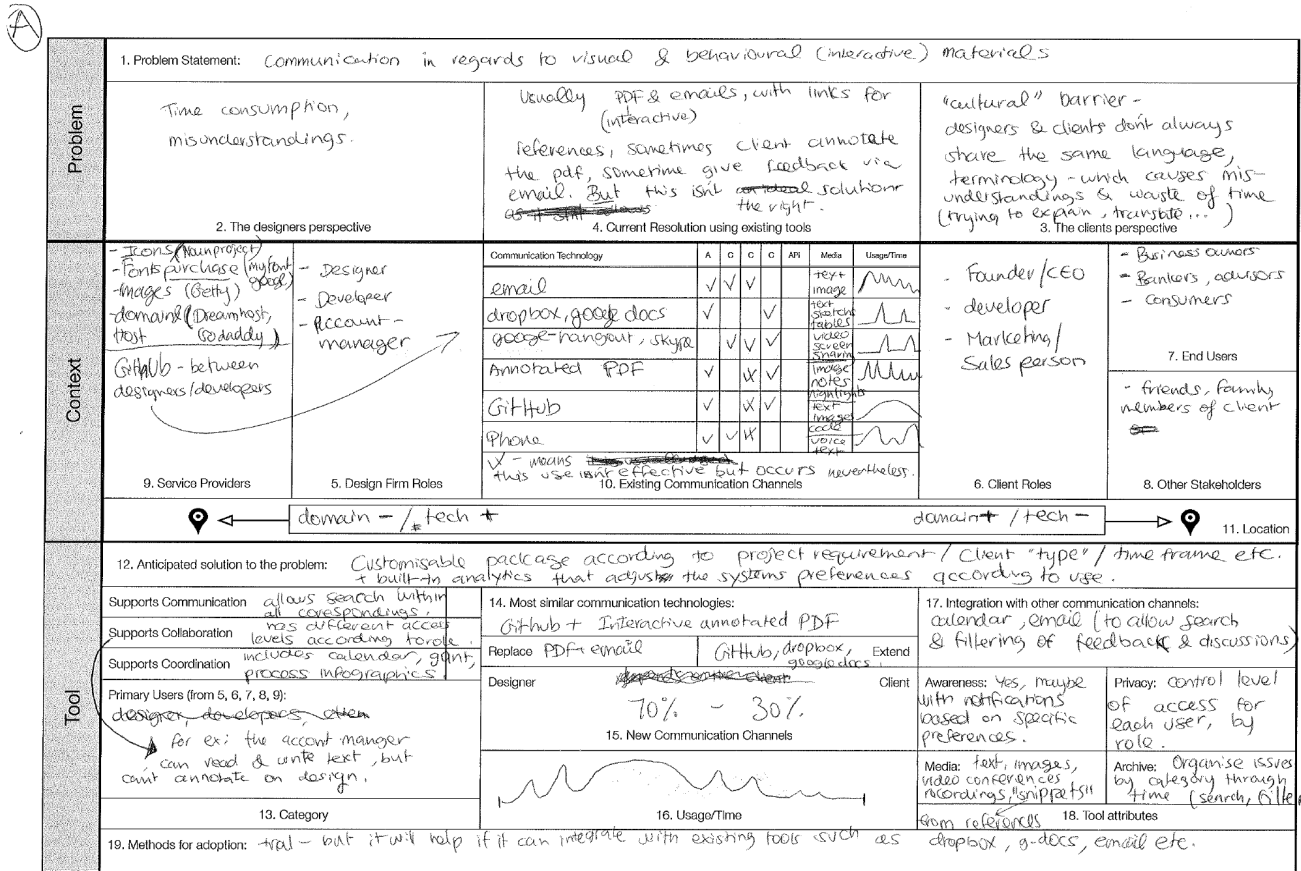 A
Problem
1. Problem Statement: Communication in regards to visual & behavioural (interactive) materials
Time consumption,
misunderstandings.
2. The designers perspective
Usually PDF & emails, with links for
(interactive)
references, sometimes client annotate
the pdf, sometime give feedback via
email. But this isn't solution
the right.
4. Current Resolution using existing tools
"cultural" barrier -
designers & clients don't always
share the same language,
terminology - which causes mis-
understandings & waste of time
(trying to explain, translate... )
3. The clients perspective
Context
- Icons (Nounproject)
- Fonts purchase (myfont google)
- Images (Getty)
- domain (Dreamhost,
Host Godaddy)
GitHub - between
designers/developers
9. Service Providers
- Designer
- Developer
- Account -
manager
5. Design Firm Roles
Communication Technology A C C C API Media Usage/Time
email ✓ ✓ ✓ text image
dropbox, google docs ✓ ✓ text sketch tables
google-hangout, skype ✓ ✓ ✓ video screen sharin
Annotated PDF ✓ X ✓ image notes highlights
GitHub ✓ X ✓ text images code
Phone ✓ ✓ X voice text
X - means
this use isnt effective but occurs nevertheless.
10. Existing Communication Channels
- Founder/CEO
- developer
- Marketing/
Sales person
6. Client Roles
- Business owners
- Bankers, advisors
- consumers
7. End Users
- friends, family,
members of client
8. Other Stakeholders
domain - / tech +
domain + / tech -
11. Location
Tool
12. Anticipated solution to the problem: Customisable package according to project requirement / Client "type" / time frame etc.
+ built-in analytics that adjust the systems preferences according to use.
Supports Communication allows search within
all corespondings.
Supports Collaboration has different access
levels according to role.
Supports Coordination includes calendar, gant,
process infographics
Primary Users (from 5, 6, 7, 8, 9):
designer, developers,
for ex: the accont manger
can read & write text, but
can't annotate on design.
13. Category
14. Most similar communication technologies:
Github + Interactive annotated PDF
Replace PDF + email
GitHub, dropbox, Extend
google docs.
Designer Client
70% - 30%
15. New Communication Channels
16. Usage/Time
17. Integration with other communication channels:
calendar, email (to allow search
& filtering of feedback & discussions)
Awareness: Yes, maybe
with notifications
based on specific
preferences.
Privacy: control level
of access for
each user, by
role.
Media: text, images,
video conferences
recordings, "snippets"
from references
Archive: Organise issues
by category through
time (search, filter
18. Tool attributes
19. Methods for adoption: trial - but it will help if it can integrate with existing tools such as dropbox, g-docs, email etc.